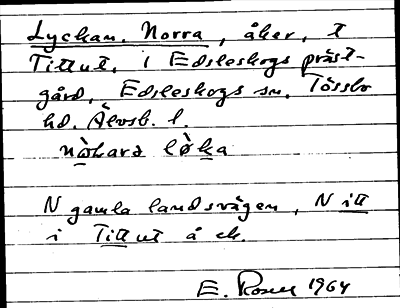 Lyckan, Norra, åker, t
Tittut, i Edsleskogs präst-
gård, Edsleskogs sn, Tössbo
hd. Älvsb. l.
N gamla landsvägen, N itt
i Tittut å ek.
E. Rosell 1964